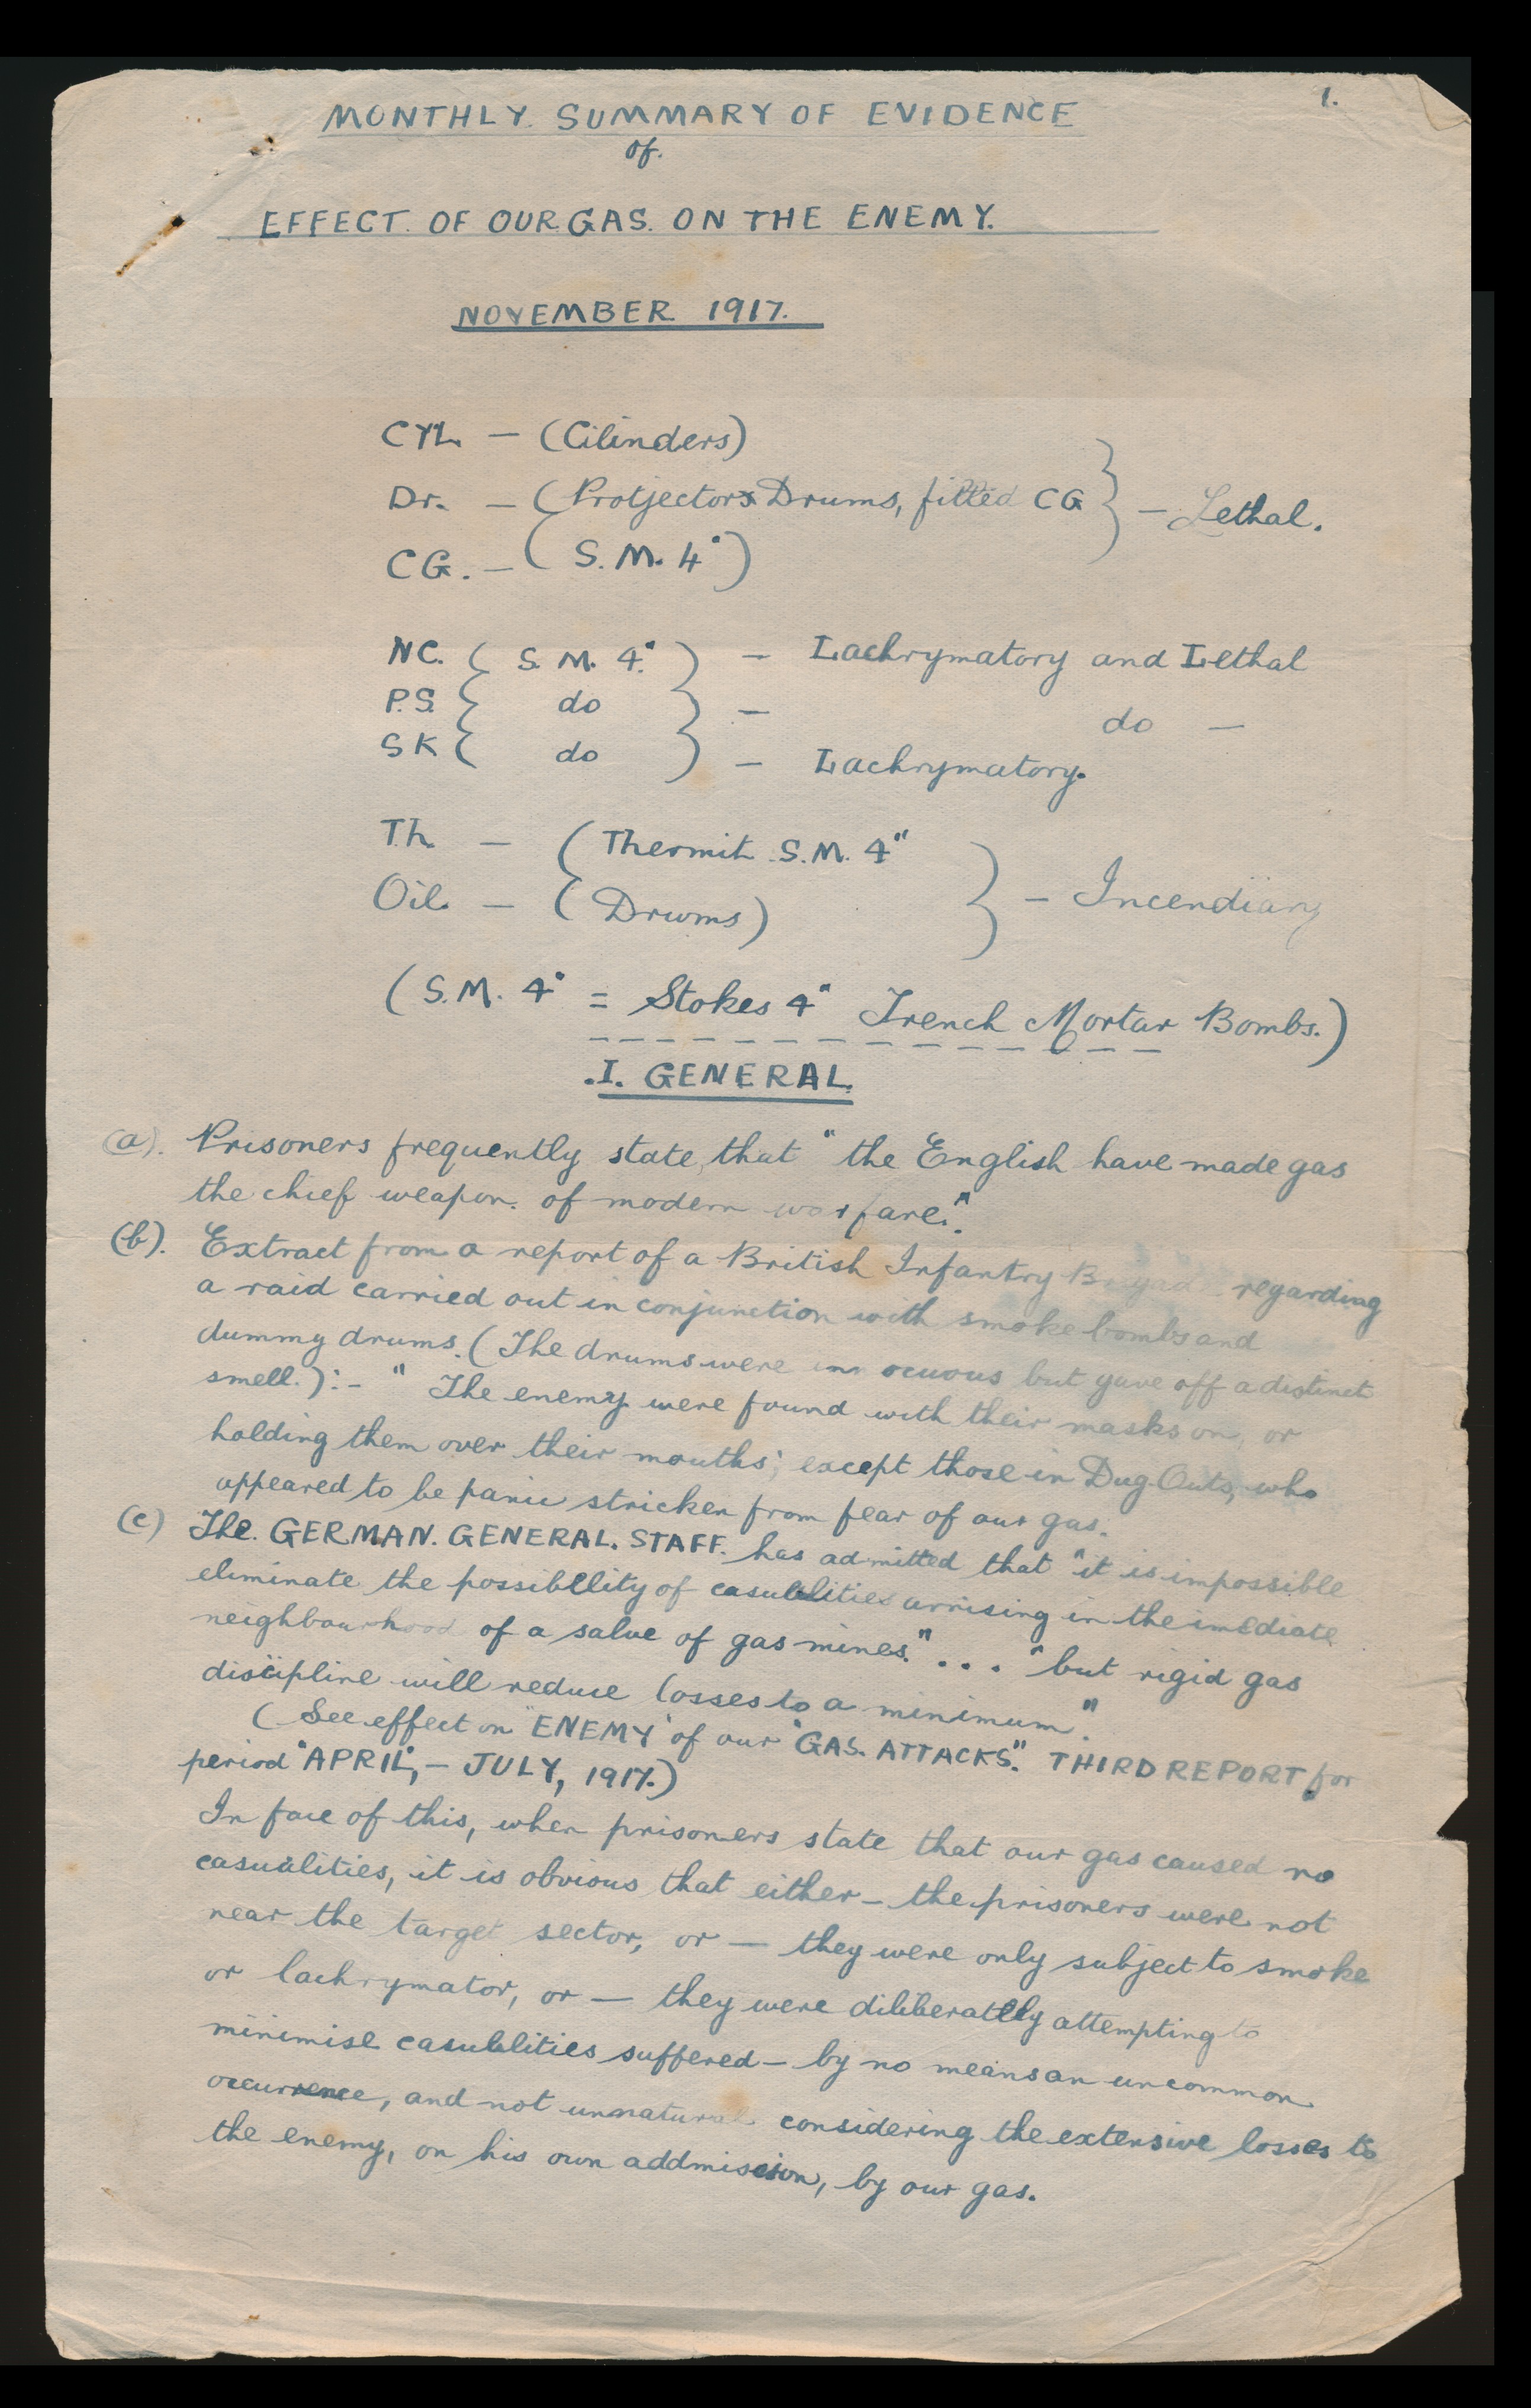 1.
MONTHLY. SUMMARY OF EVIDENCE
of.
EFFECT. OF OUR GAS. ON THE ENEMY.
NOVEMBER 1917.
CYL. — (Cilinders)
Dr. — (Protjectors Drums, filled CG } — Lethal.
CG. — ( S.M. 4" )
NC. ( S. M. 4." ) — Lachrymatory and Lethal
P.S. { do } — do —
SK ( do ) — Lachrymatory.
Th. — ( Thermit S.M. 4"
Oil. — ( Drums) } — Incendiary
(S.M. 4" = Stokes 4" Trench Mortar Bombs.)
.I. GENERAL.
(a). Prisoners frequently state, that "the English have made gas
the chief weapon. of modern warfare."
(b). Extract from a report of a British Infantry Brigad regarding
a raid carried out in conjunction with smoke bombs and
dummy drums. (The drums were inn ocuous but gave off a distinct
smell.):- " The enemy were found with their masks on, or
holding them over their mouths; except those in Dug-Outs, who
appeared to be panic stricken from fear of our gas.
(c) The. GERMAN. GENERAL. STAFF. has admitted that "it is impossible
eliminate the possibllity of casulalities arrising in the imediate
neighbourhood of a salve of gas mines." . . . "but rigid gas
discipline will reduce losses to a minimum".
( See effect on "ENEMY" of our "GAS. ATTACKS." THIRD REPORT for
period "APRIL", — JULY, 1917.)
In face of this, when prisoners state that our gas caused no
casualities, it is obvious that either — the prisoners were not
near the target sector, or — they were only subject to smoke
or lachrymator, or — they were diliberatlly attempting to
minimise casulalities suffered — by no means an uncommon
occurrence, and not unnatural considering the extensive losses to
the enemy, on his own addmission, by our gas.